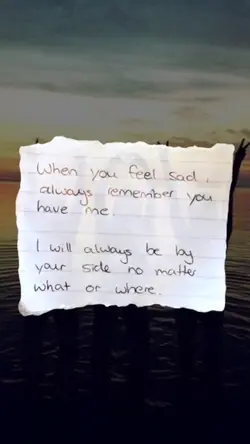 When you feel sad,
always remember you
have me.
I will always be by
your side no matter
what or where.